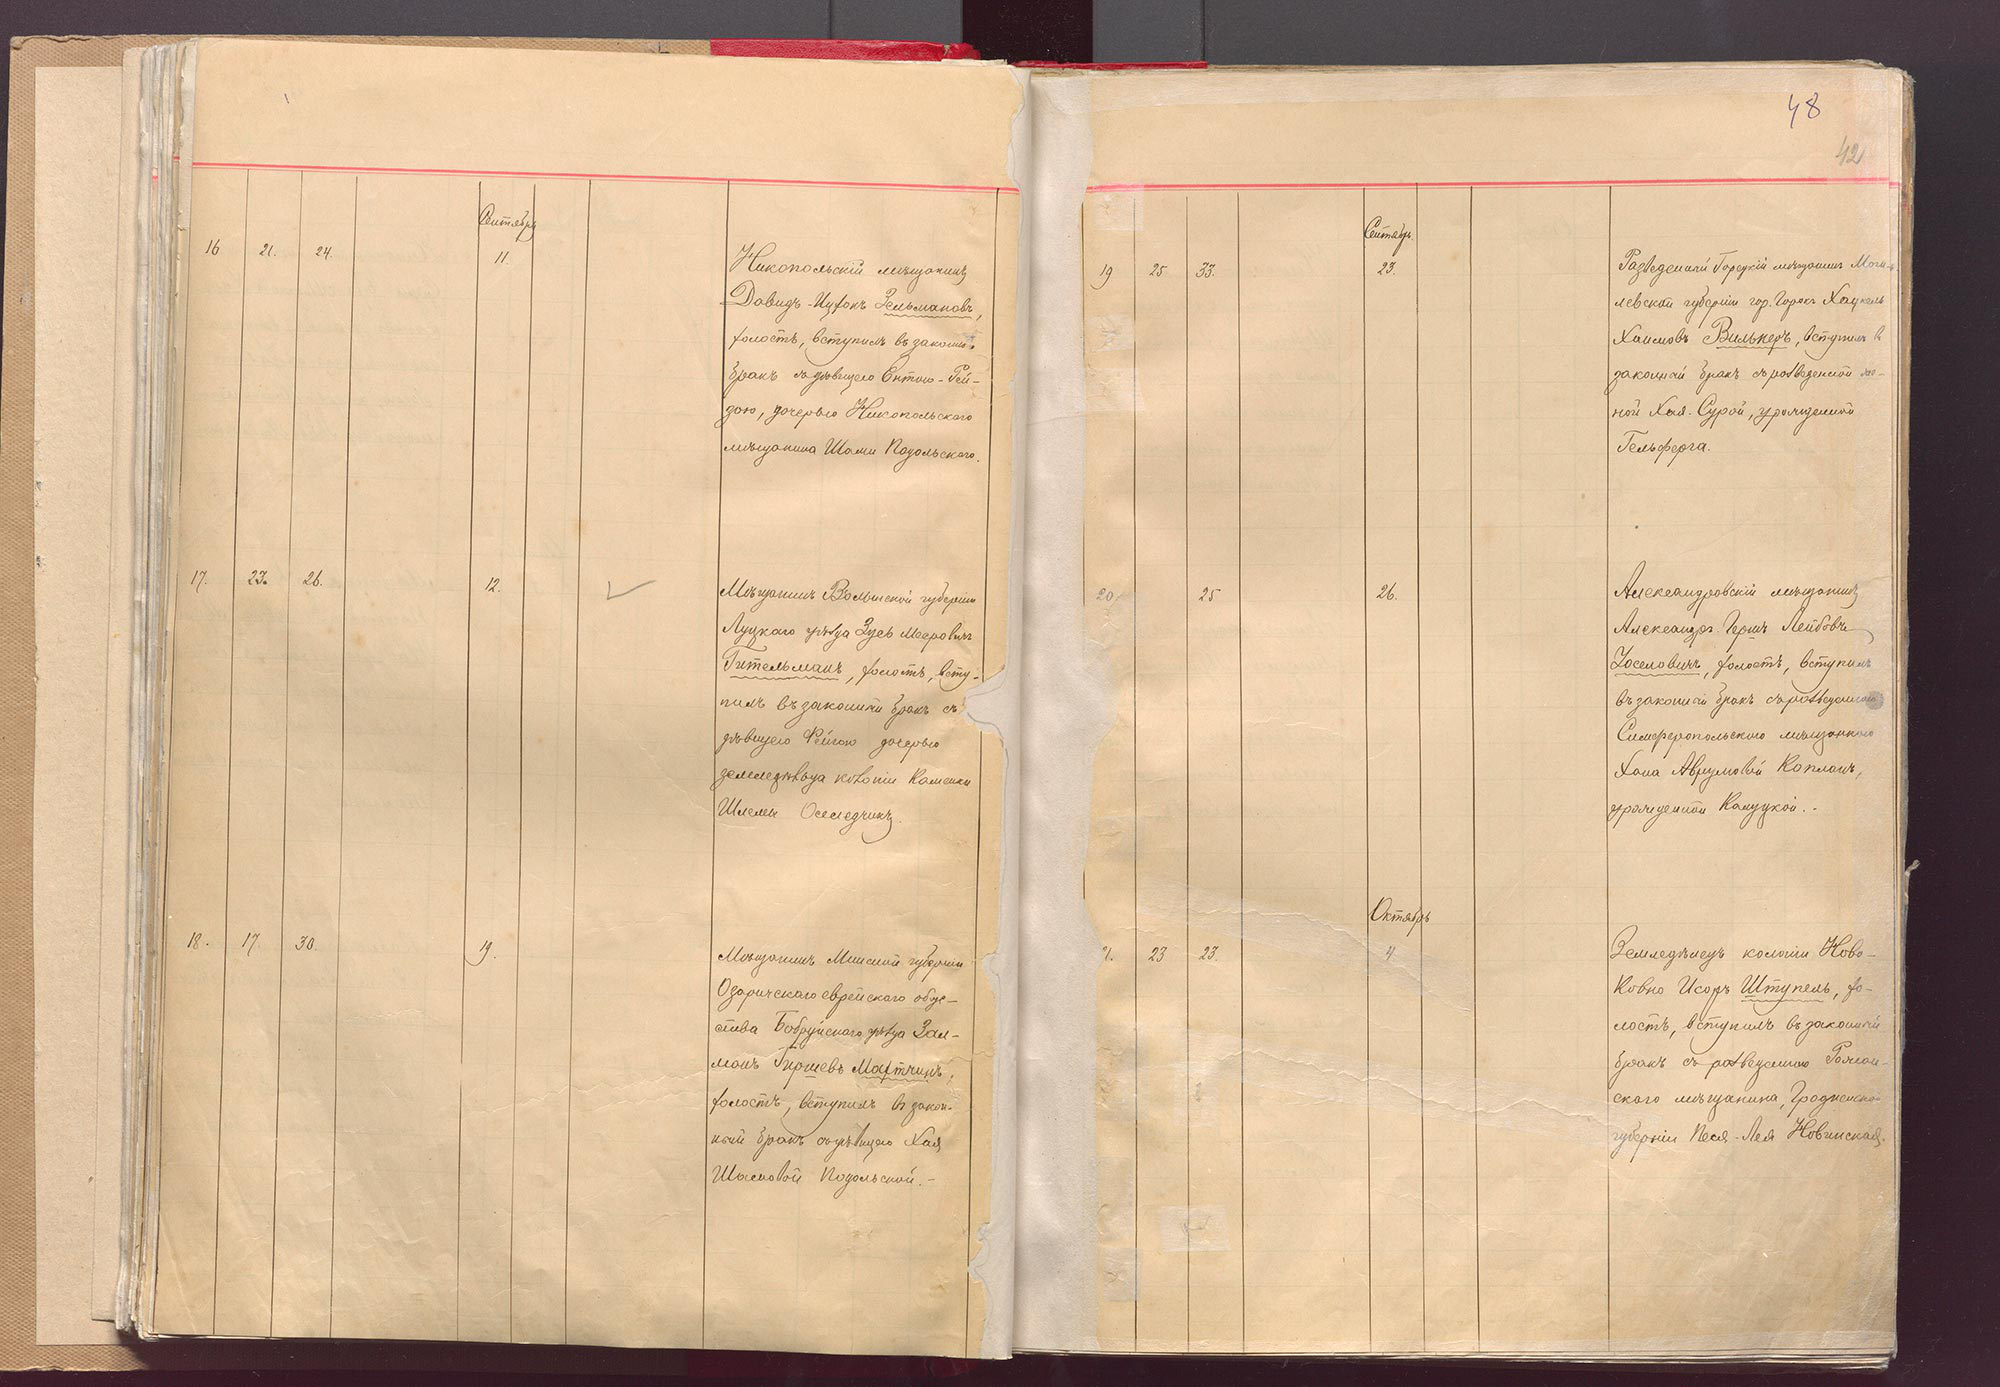 Сентябрь
16 21. 24. 11.
Никопольскій мѣщанинъ
Давидъ-Ицхокъ Зельмановъ,
холостъ, вступилъ въ законн.
бракъ съ дѣвицею
дочерью Никопольскаго
мѣщанина Шоми Подольскаго.
17. 23. 26. 12.
Мѣщанинъ Волынской губерніи
Луцкаго уѣзда Зусь Мееровичъ
Гительманъ, холостъ, всту-
пилъ въ законный бракъ съ
дѣвицею Фейгою дочерью
земледѣльца колоніи Каменки
Шлемы Оселедчикъ.
18. 17. 30. 19.
Мѣщанинъ Минской губерніи
Озаричскаго еврейского обще-
ства Бобруйскаго уѣзда Зал-
манъ Гиршевъ
холостъ, вступилъ въ закон-
ный бракъ съ дѣвицею Хая
Подольской.-
48
42
Сентябрь
19 25 33. 23.
Разведенный Горецкій мѣщанинъ Моги-
левской губерніи гор. Горокъ Хацкель
Хаимовъ Вилькеръ, вступилъ в
законный бракъ съ разведенной же-
ной Хая-Сурой, урожденной
20. 25 26.
Александровскій мѣщанинъ
Александръ-Гершъ Лейбовъ
Іоселовичъ, холостъ, вступилъ
въ законный бракъ съ разведенной
Симферопольскою мѣщанкою
Хана Аврумовой Капланъ,
урожденной
Октябрь
21. 23 23. 4
Земледѣлецъ колоніи Ново-
Ковно Исоръ Штупель, хо-
лостъ, вступилъ въ законный
бракъ съ разведенною
скаго мѣщанина, Гродненской
губерніи Песя-Лея Новинская.